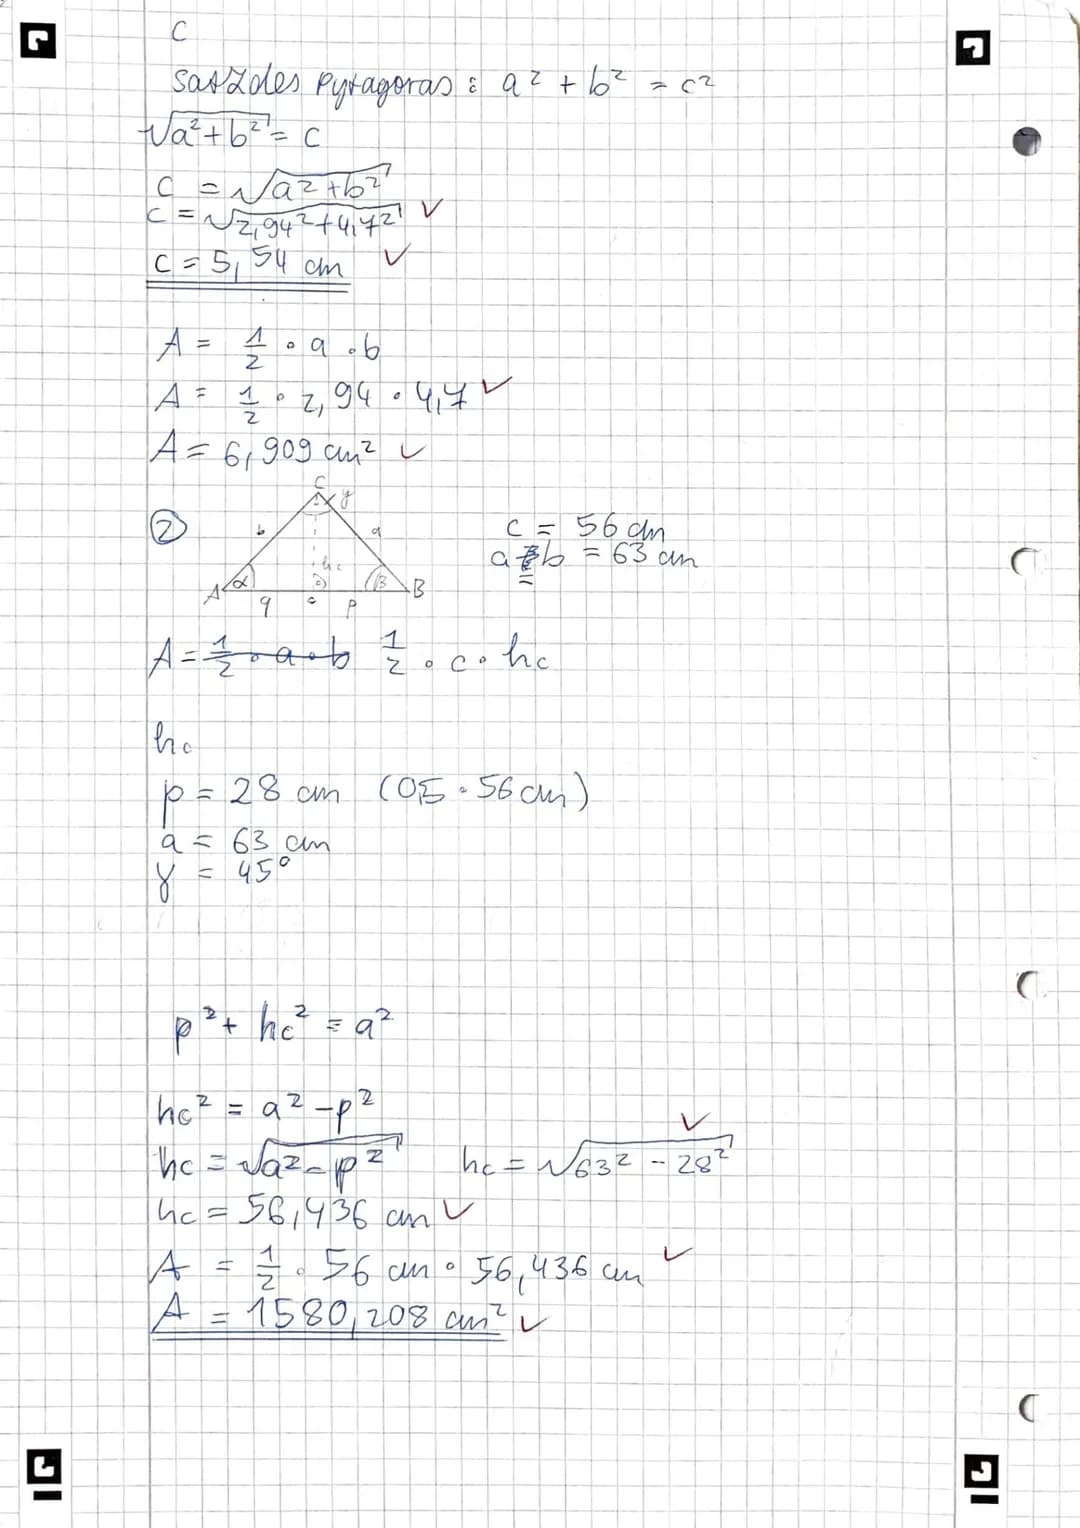 c
Satz des Pytagoras : a² + b² = c²
√a²+b² = c
c = √a²+b²
c = √2,94²+4,7² ✓
c = 5,54 cm ✓
A = 1/2 · a · b
A = 1/2 · 2,94 · 4,7 ✓
A = 6,909 cm² ✓
②
C γ
b a
hc
α β
A B
q c p
c = 56 cm
a b = 63 cm
A = 1/2 · a · b 1/2 · c · hc
hc
p = 28 cm (0,5 · 56 cm)
a = 63 cm
γ = 45°
p² + hc² = a²
hc² = a² - p²
hc = √a² - p² hc = √63² - 28² ✓
hc = 56,436 cm ✓
A = 1/2 · 56 cm · 56,436 cm ✓
A = 1580,208 cm² ✓